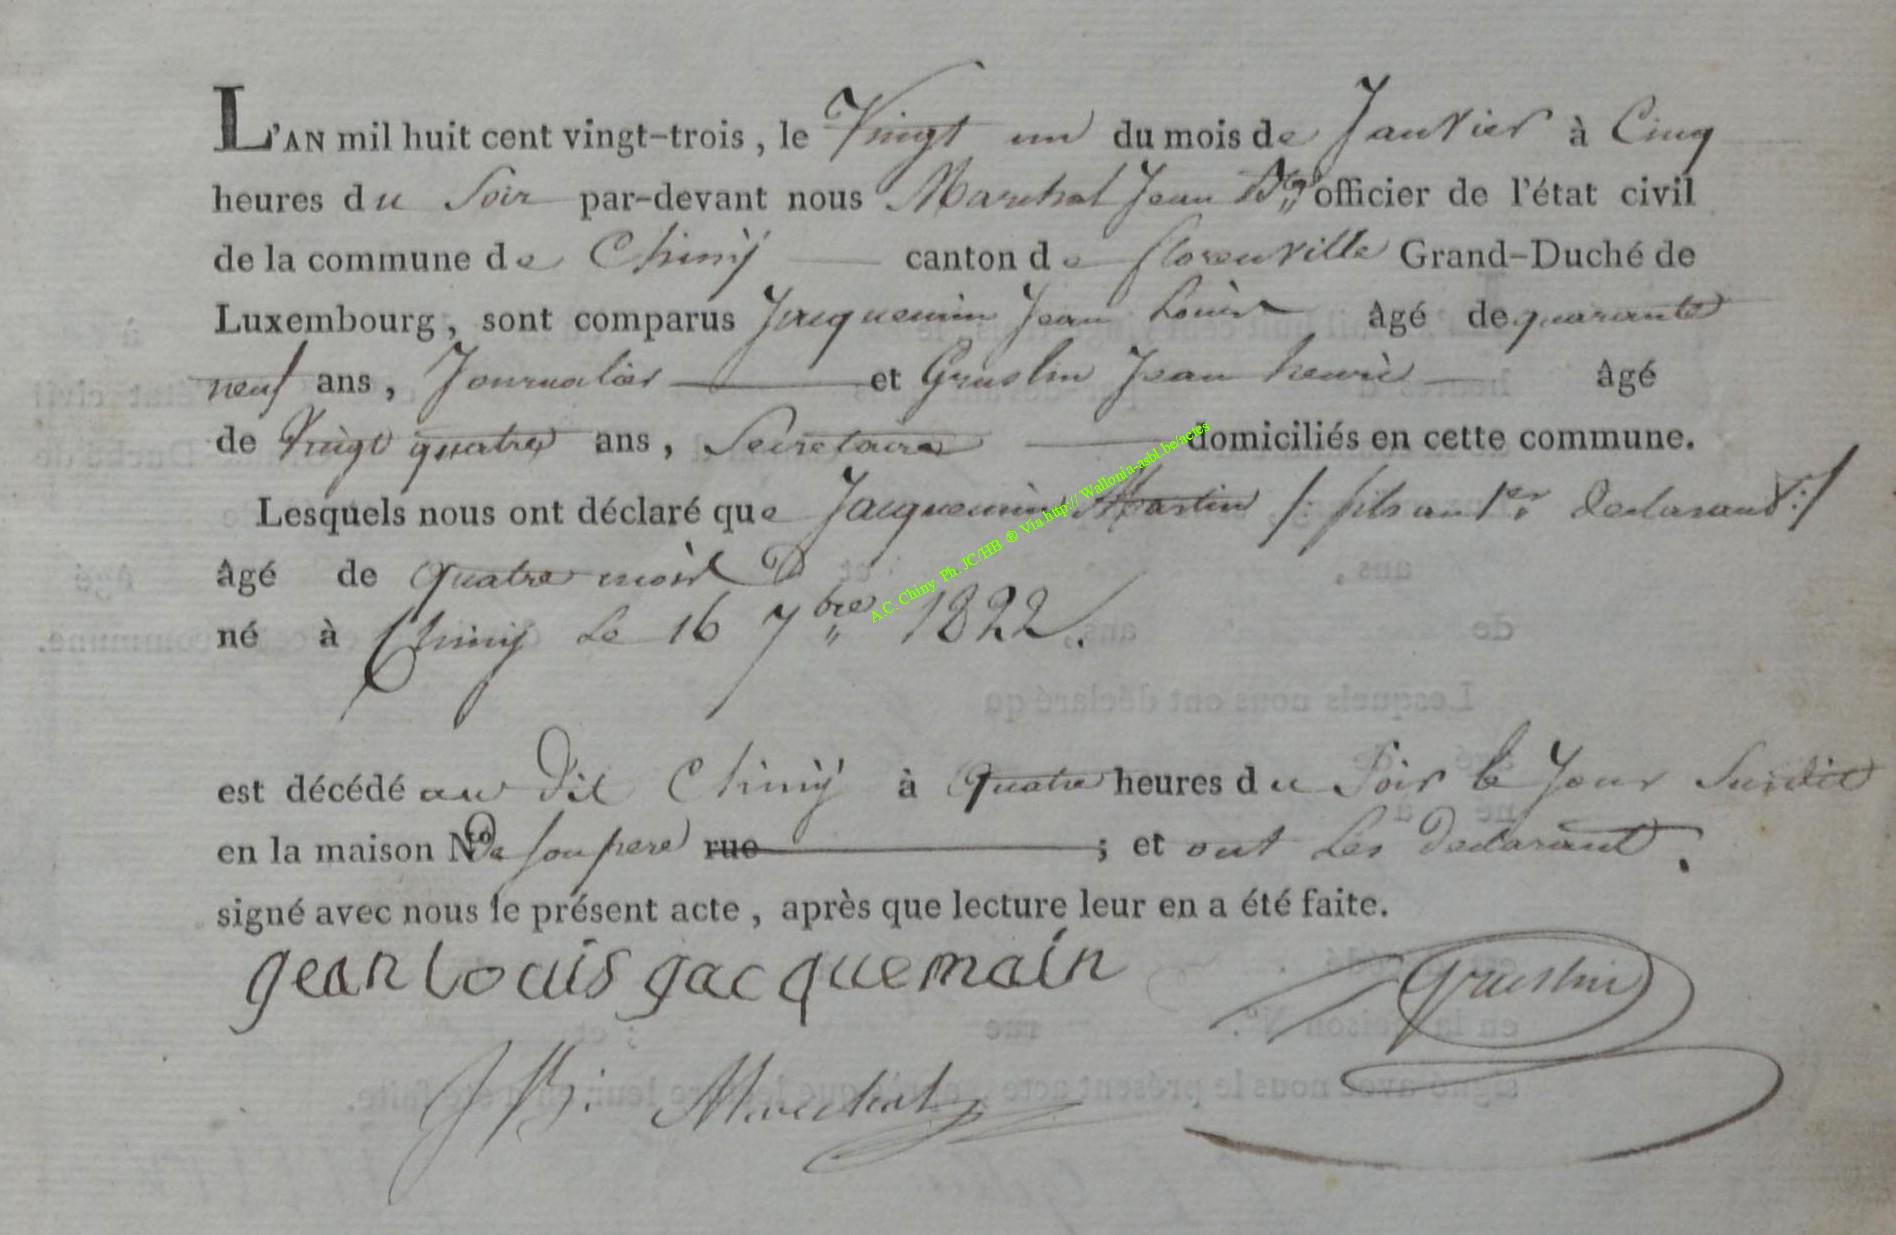 L'AN mil huit cent vingt-trois, le Vingt un du mois de Janvier à Cinq
heures du Soir par-devant nous Marechal Jean Bte officier de l'état civil
de la commune de Chiny canton de florenville Grand-Duché de
Luxembourg, sont comparus Jacquemin Jean Louis âgé de quarante
neuf ans, Journalier et Gruslin Jean henri âgé
de Vingt quatre ans, Secretaire domiciliés en cette commune.
Lesquels nous ont déclaré que Jacquemin Martin /: fils au 1er declarant :/
âgé de quatre mois
né à Chiny Le 16 7bre 1822.
est décédé au dit Chiny à quatre heures du Soir le Jour Susdit
en la maison No De son pere rue ; et ont Les Declarant.
signé avec nous le présent acte, après que lecture leur en a été faite.
jean louis jacquemain Gruslin
JB: Marechal
A.C. Chiny Ph. JC/HB ® Via http:// Wallonia-asbl.be/actes